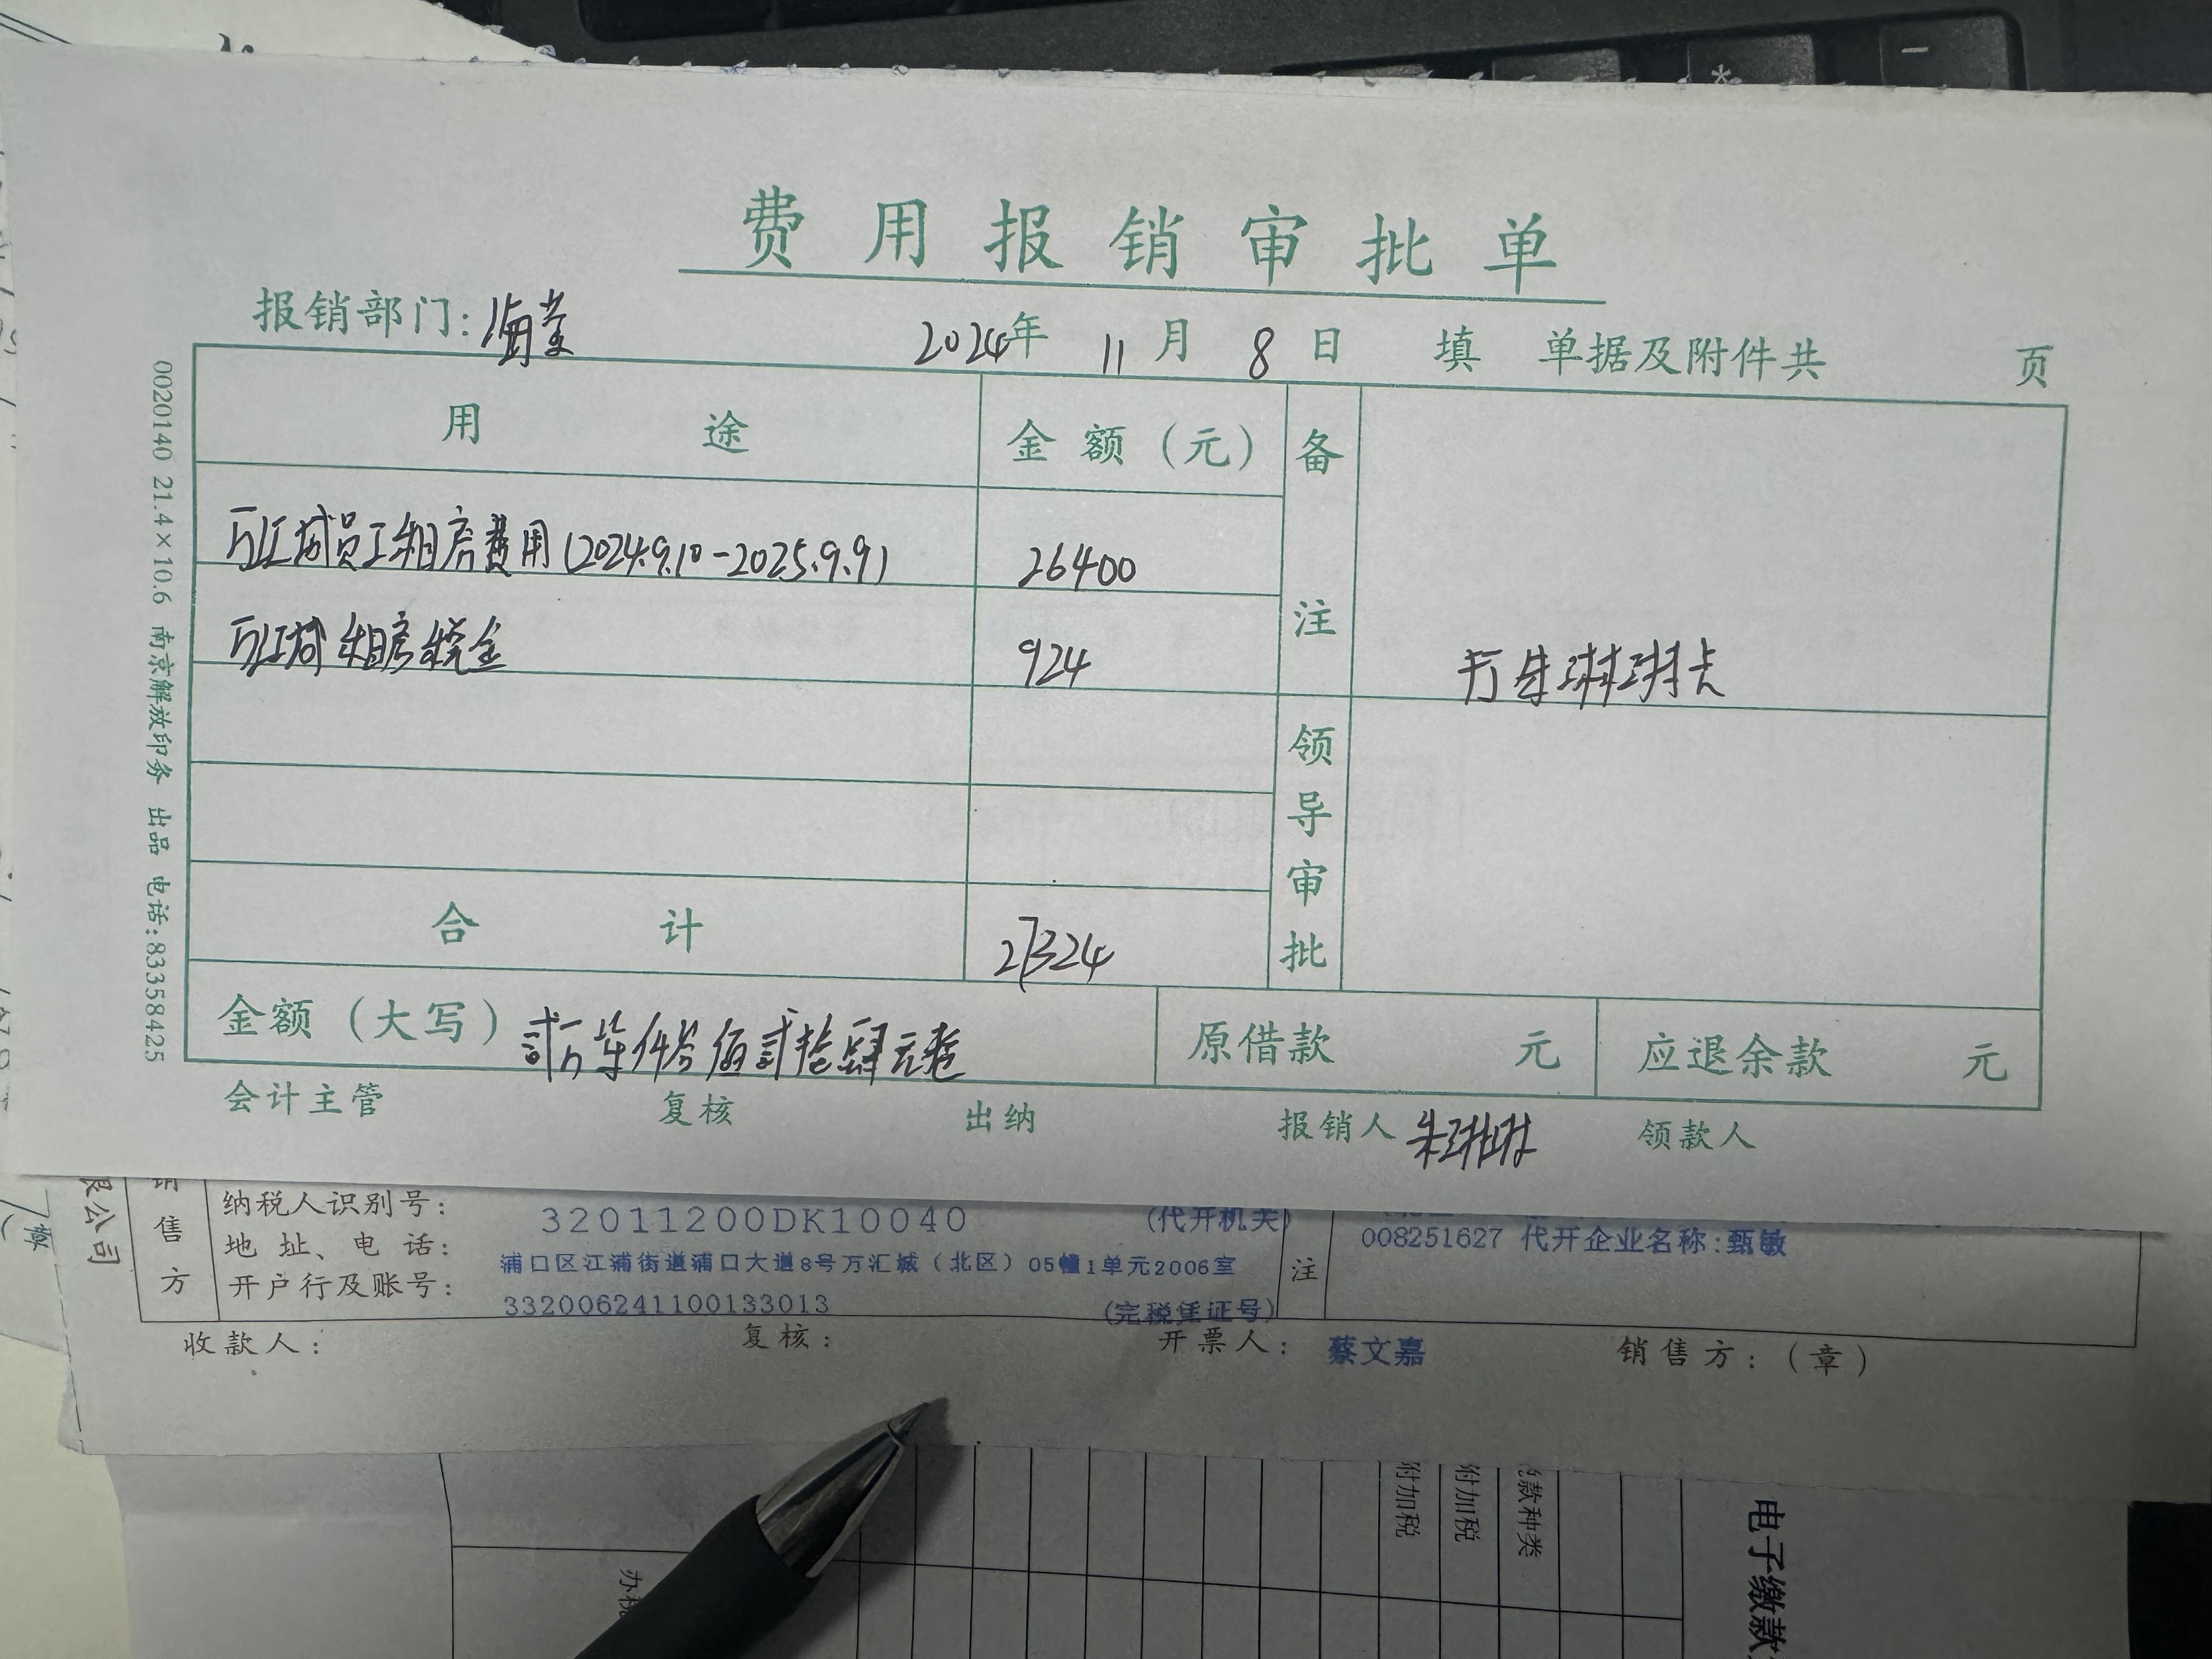 费用报销审批单
报销部门: 海莹 2024年 11月 8日 填 单据及附件共 页
用途 金额(元) 备注
万江城员工租房费用(2024.9.10-2025.9.9) 26400
万江城租房税金 924
打朱琳琳卡
领导审批
合计 27324
金额(大写) 贰万柒仟叁佰贰拾肆元整 原借款 元 应退余款 元
会计主管 复核 出纳 报销人 朱琳琳 领款人
0020140 21.4×10.6 南京解放印务 出品 电话:83358425
限公司
章
销售方
纳税人识别号: 32011200DK10040 (代开机关)
地址、电话: 浦口区江浦街道浦口大道8号万汇城(北区)05幢1单元2006室
开户行及账号: 332006241100133013 (完税凭证号)
注
008251627 代开企业名称:甄敏
收款人: 复核: 开票人: 蔡文嘉 销售方:(章)
附加税
附加税
款种类
办税
电子缴款